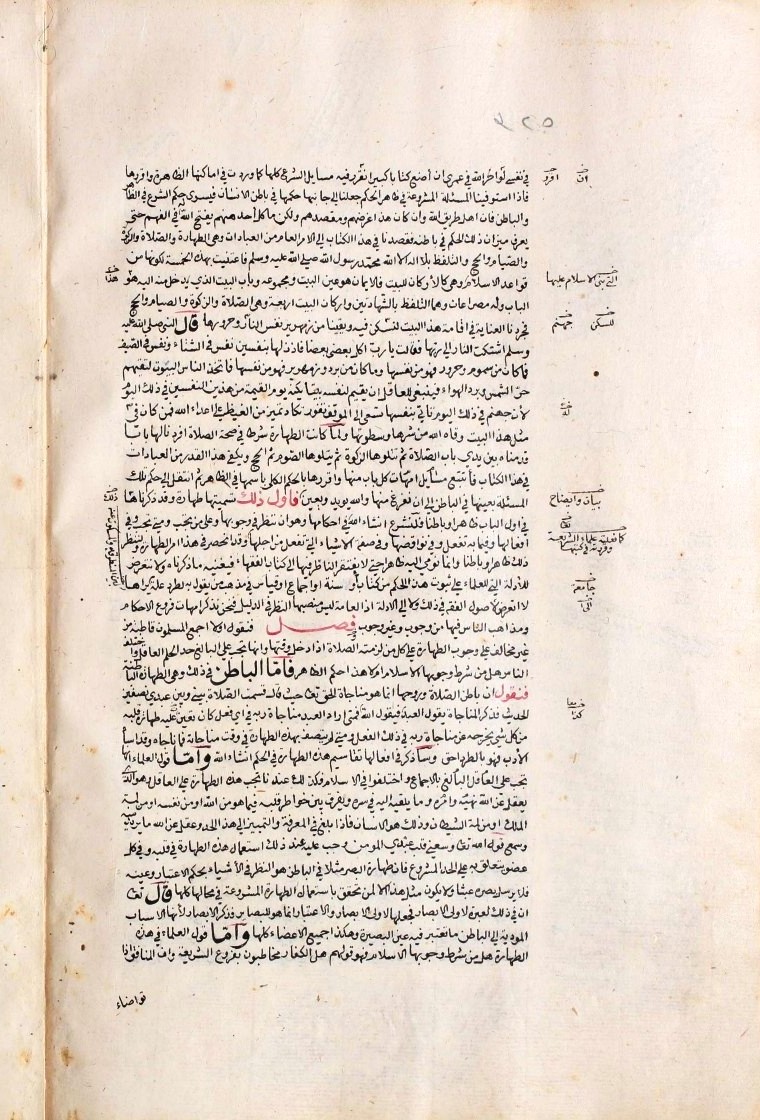 في نفسي لو أخر الله في عمري ان أضع كتابا كبيرا نقرر فيه مسايل الشرع كلها كما وردت في اماكنها الظاهرة واقررها
فاذا استوفينا المسئلة المشروعة في ظاهر الحكم جعلنا الى جانبها حكمها في باطن الانسان فيسرى حكم الشرع في الظاهر
والباطن فان اهل طريق الله وان كان هذا غرضهم ومقصدهم ولكن ما كل أحد منهم يفتح الله في الفهم حتى
يعرف ميزان ذلك الحكم في باطنه فقصدنا في هذا الكتاب الى الامر العام من العبادات وهي الطهارة والصلاة والزكوة
والصيام والحج والتلفظ بلا اله الا الله محمد رسول الله صلى الله عليه وسلم فاعتنيت بهذه الخمسة لكونها من
قواعد الاسلام وهي كالاركان للبيت فالايمان هو عين البيت ومجموعه وباب البيت الذي يدخل منه اليه هو
الباب وله مصراعان وهما التلفظ بالشهادتين واركان البيت اربعة وهي الصلاة والزكوة والصيام والحج
فجردنا العناية في اقامة هذا البيت لنسكن فيه ويقينا من زمهرير نفس النار وحرورها قال النبي صلى الله عليه
وسلم اشتكت النار الى ربها فقالت يا رب اكل بعضي بعضا فاذن لها بنفسين نفس في الشتاء ونفس في الصيف
فما كان من سموم وحرور فهو من نفسها وما كان من برد وزمهرير فهو من نفسها فاتخذ الناس البيوت لتقيهم
حر الشمس وبرد الهواء فينبغي للعاقل ان يقيم لنفسه بيتا يكنه يوم القيمة من هذين النفسين في ذلك اليوم
لأن جهنم في ذلك اليوم تأتي بنفسها تسعى الى الموقف تفور تكاد تميز من الغيظ على اعداء الله فمن كان في
مثل هذا البيت وقاه الله من شرها وسطوتها ولما كانت الطهارة شرطا في صحة الصلاة افردنا لها بابا
قدمناه بين يدي باب الصلاة ثم تتلوها الزكوة ثم يتلوها الصوم ثم الحج ويكفي هذا القدر من العبادات
في هذا الكتاب فأتتبع مسايل امهات كل باب منها واقررها بالحكم الكلي باسمها في الظاهر ثم انتقل الى حكم تلك
المسئلة بعينها في الباطن الى ان نفرغ منها والله يؤيد ويعين فاول ذلك تسميتها طهارة وقد ذكرناها
في اول الباب ظاهرا وباطنا فلنشرع انشاء الله في احكامها وهو ان ننظر في وجوبها وعلى من يجب ومتى تجب وفي
أفعالها وفيما به تفعل وفي نواقضها وفي صفة الاشياء التي تفعل من اجلها وقد انحصر في هذا امر الطهارة وننظر
ذلك ظاهرا وباطنا وانما نومي اليه ظاهرا حتى لا يفتقر الناظر فيها الى كتاب الفقهاء فيغنيه ما ذكرناه ولا نتعرض
للأدلة التي للعلماء على ثبوت هذا الحكم من كتاب أو سنة او اجماع او قياس في مذهب من يقول به لطرد علة يراها
لا اتعرض لاصول الفقه في ذلك ولا الى الادلة اذ العامة ليس منصبها النظر في الدليل فنحن نذكر امهات فروع الاحكام
ومذاهب الناس فيها من وجوب وغير وجوب فصل فنقول اولا اجمع المسلمون قاطبة من
غير مخالف على وجوب الطهارة على كل من لزمته الصلاة اذا دخل وقتها وانها يجب على البالغ حد الحلم العاقل واختلف
الناس هل من شرط وجوبها الاسلام ام لا هذا حكم الظاهر فاما الباطن في ذلك وهي الطهارة الباطنة
فنقول ان باطن الصلاة وروحها انما هو مناجاة الحق تعالى حيث قال قسمت الصلاة بيني وبين عبدي نصفين
الحديث فذكر المناجاة يقول العبد فيقول الله فمتى اراد العبد مناجاة ربه في اي فعل كان تعين عليه طهارة قلبه
من كل شئ يخرجه عن مناجاة ربه في ذلك الفعل ومتى لم يتصف بهذه الطهارة في وقت مناجاته فما ناجاه وقد اساء
الأدب فهو بالطرد احق وسأذكر في افعالها تقاسيم هذه الطهارة في الحكم انشاء الله واما قول العلماء انها
تجب على العاقل البالغ بالاجماع واختلفوا في الاسلام فكذلك عندنا تجب هذه الطهارة على العاقل وهو الذي
يعقل عن الله نهيه وامره وما يلقيه اليه في سره ويفرق بين خواطر قلبه فيما هو من الله او من نفسه او من لمة
الملك او من لمة الشيطان وذلك هو الانسان فاذا بلغ في المعرفة والتمييز الى هذا الحد وعقل عن الله ما يريد منه
وسمع قول الله تعالى وسعني قلب عبدي المومن وجب عليه عند ذلك استعمال هذه الطهارة في قلبه وفي كل
عضو يتعلق به على الحد المشروع فان طهارة البصر مثلا في الباطن هو النظر في الأشياء بحكم الاعتبار وعينه
فلا يرسل بصره عبثا ولا يكون مثل هذا الا لمن تحقق باستعمال الطهارة المشروعة في محالها كلها قال تعالى
ان في ذلك لعبرة لاولى الابصار فجعلها لاولى الابصار والاعتبار انما هو للبصائر فذكر الابصار لأنها الاسباب
المودية الى الباطن ما تعتبر فيه عين البصيرة وهكذا جميع الاعضاء كلها واما قول العلماء في هذه
الطهارة هل من شرط وجوبها الاسلام فهو قولهم هل الكفار مخاطبون بفروع الشريعة وان المنافق اذا
توضاء
ان
افرد
التي بني الاسلام عليها
لنسكن
جهنم
بيان وايضاح